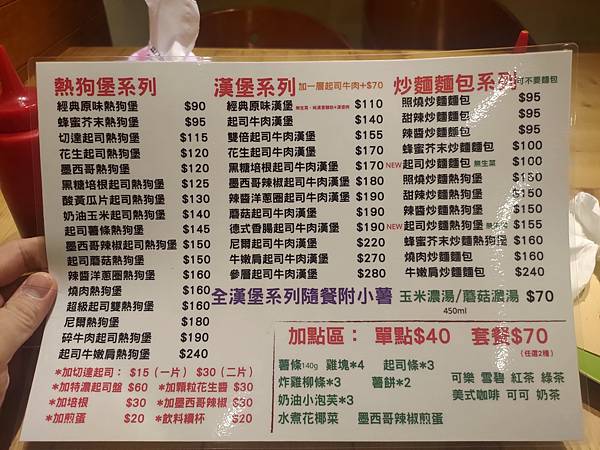 熱狗堡系列
經典原味熱狗堡 $90
蜂蜜芥末熱狗堡 $95
切達起司熱狗堡 $115
花生起司熱狗堡 $120
墨西哥熱狗堡 $120
黑糖培根起司熱狗堡 $125
酸黃瓜片起司熱狗堡 $130
奶油玉米起司熱狗堡 $140
起司薯條熱狗堡 $145
墨西哥辣椒起司熱狗堡 $150
起司蘑菇熱狗堡 $150
辣醬洋蔥圈熱狗堡 $160
燒肉熱狗堡 $160
超級起司雙熱狗堡 $160
尼爾熱狗堡 $180
碎牛肉起司熱狗堡 $190
起司牛嫩肩熱狗堡 $240
*加切達起司： $15（一片） $30（二片）
*加特濃起司盤 $60 *加顆粒花生醬 $30
*加培根 $30 *加墨西哥辣椒 $30
*加煎蛋 $20 *飲料續杯 $20
漢堡系列 加一層起司牛肉+$70
經典原味漢堡 $110
起司牛肉漢堡 $140
雙倍起司牛肉漢堡 $155
花生起司牛肉漢堡 $170
黑糖培根起司牛肉漢堡 $170
墨西哥辣椒起司牛肉漢堡 $180
辣醬洋蔥圈起司牛肉漢堡 $190
蘑菇起司牛肉漢堡 $190
德式香腸起司牛肉漢堡 $190
尼爾起司牛肉漢堡 $220
牛嫩肩起司牛肉漢堡 $270
參層起司牛肉漢堡 $280
全漢堡系列隨餐附小薯
炒麵麵包系列 可不要麵包
照燒炒麵麵包 $95
甜辣炒麵麵包 $95
辣醬炒麵麵包 $95
蜂蜜芥末炒麵麵包 $100
NEW 起司炒麵麵包 無生菜 $100
照燒炒麵熱狗堡
甜辣炒麵熱狗堡 $150
辣醬炒麵熱狗堡 $150
NEW 起司炒麵熱狗堡 $155
蜂蜜芥末炒麵熱狗堡 $160
燒肉炒麵麵包 $160
牛嫩肩炒麵麵包 $240
玉米濃湯/蘑菇濃湯 $70
450ml
加點區： 單點$40 套餐$70
（任選2種）
薯條140g 雞塊*4 起司條*3
炸雞柳條*3 薯餅*2
奶油小泡芙*3
水煮花椰菜 墨西哥辣椒煎蛋
可樂 雪碧 紅茶 綠茶
美式咖啡 可可 奶茶